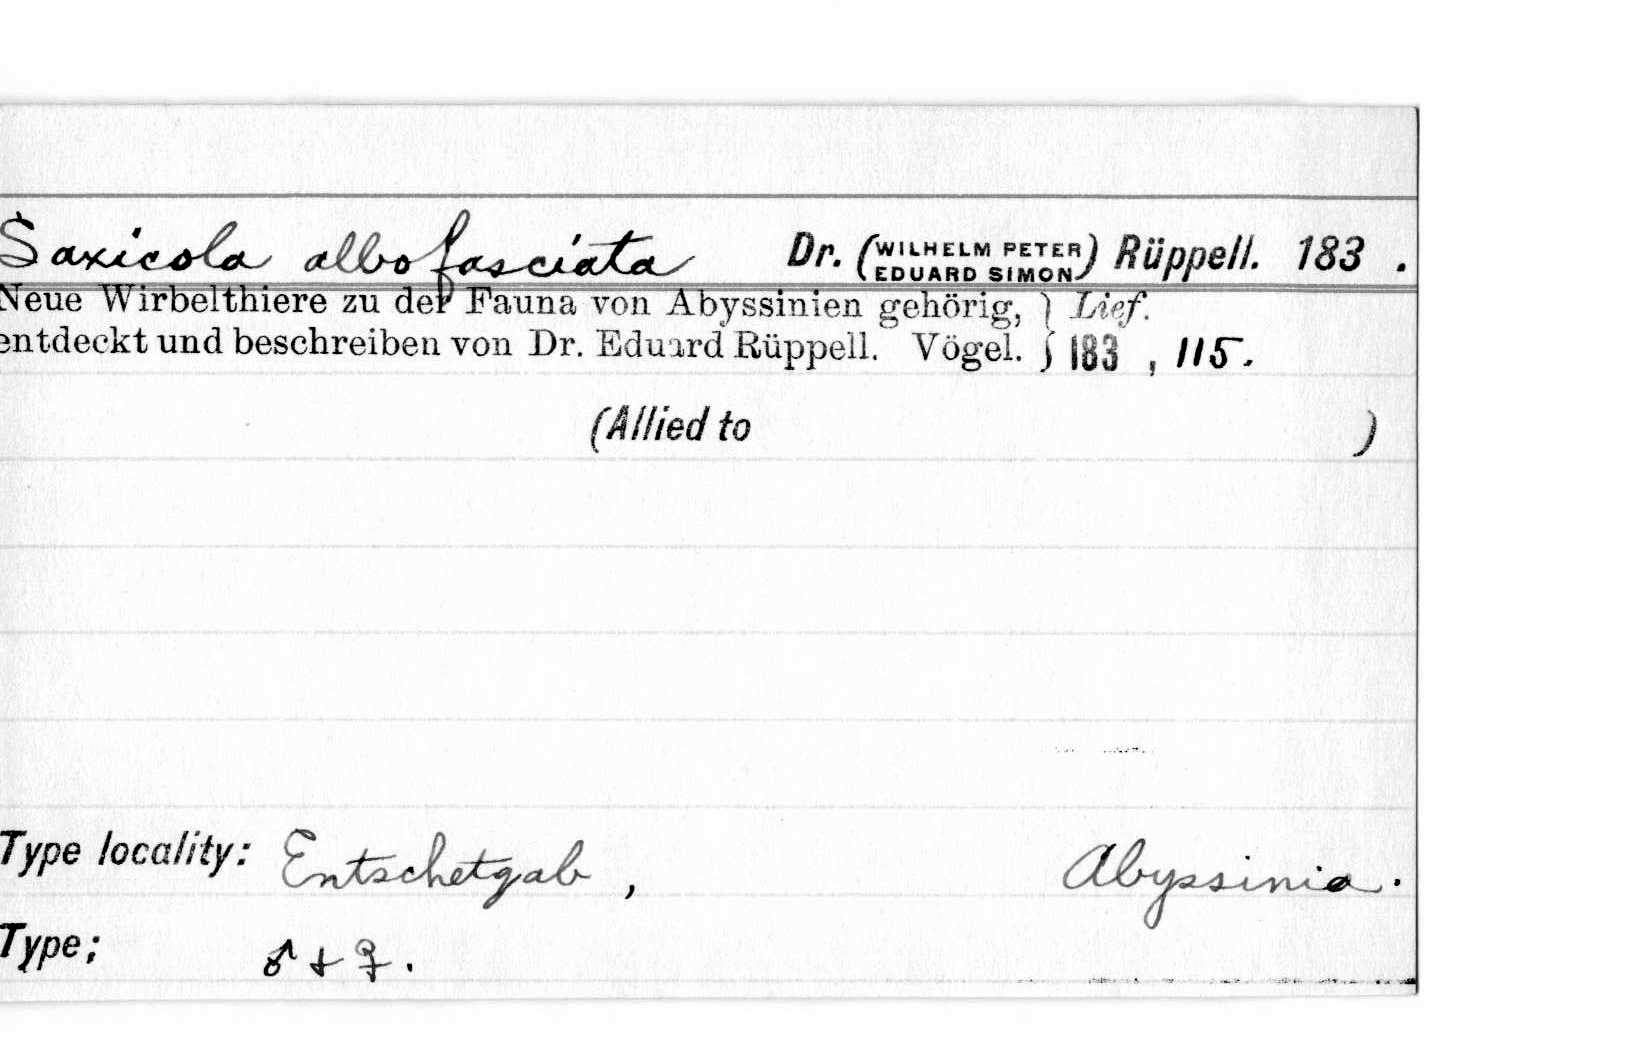 Saxicola albofasciata Dr. (WILHELM PETER EDUARD SIMON) Rüppell. 183 .
Neue Wirbelthiere zu der Fauna von Abyssinien gehörig, } Lief.
entdeckt und beschreiben von Dr. Eduard Rüppell. Vögel. } 183 , 115.
(Allied to )
Type locality: Entschetgab, Abyssinia.
Type; ♂ + ♀.